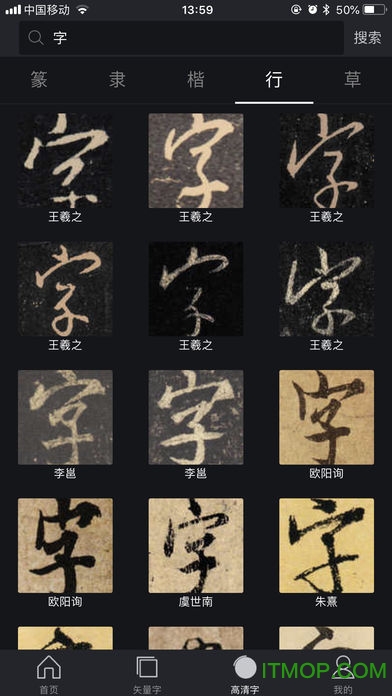 中国移动 13:59 50%
字 搜索
篆 隶 楷 行 草
字 字 字
王羲之 王羲之 王羲之
字 字 字
王羲之 王羲之 王羲之
字 字 字
李邕 李邕 欧阳询
字 字 字
欧阳询 虞世南 朱熹
首页 矢量字 高清字 我的
ITMOP.com